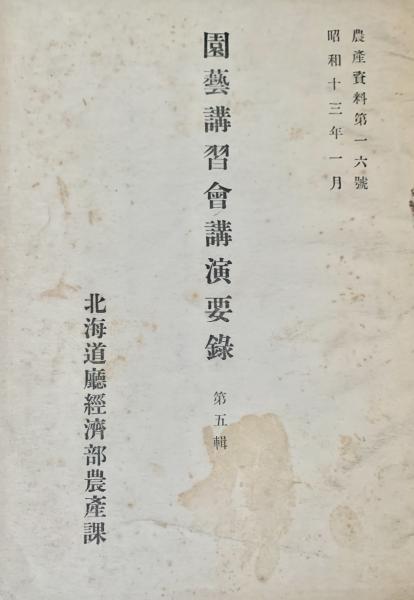 農產資料第一六號
昭和十三年一月
園藝講習會講演要錄 第五輯
北海道廳經濟部農產課